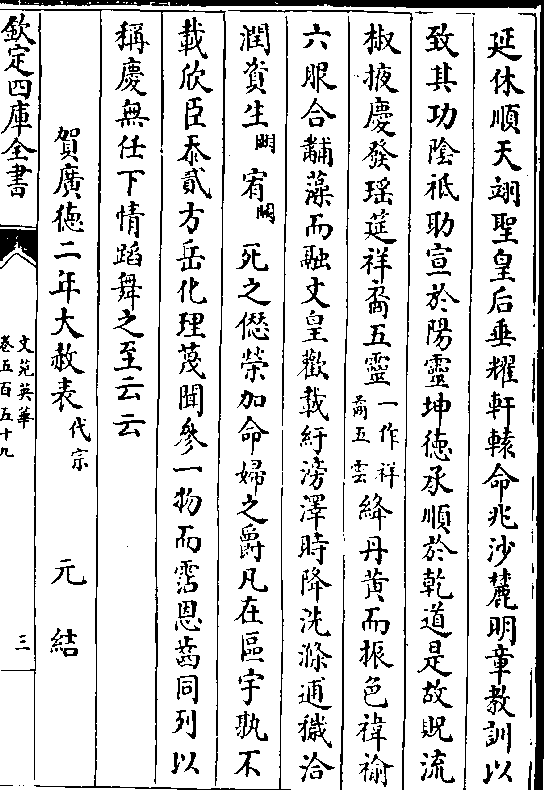 延休順天翊聖皇后垂耀軒轅命兆沙麓明章教訓以
致其功陰祇助宣於陽靈坤徳承順於乾道是故貺流
椒掖慶發瑶筵祥裔五靈一作祥矞五雲絳丹黄而振色褘褕
六服合黼藻而融文皇歡載紆滂澤時降洗滌逋穢洽
潤資生闕宥闕死之僁榮加命婦之爵凡在區宇孰不
載欣臣忝貳方岳化理蔑聞參一物而霑恩齒同列以
稱慶無任下情蹈舞之至云云
賀廣徳二年大赦表代宗 元結
欽定四庫全書
文苑英華
卷五百五十九
三